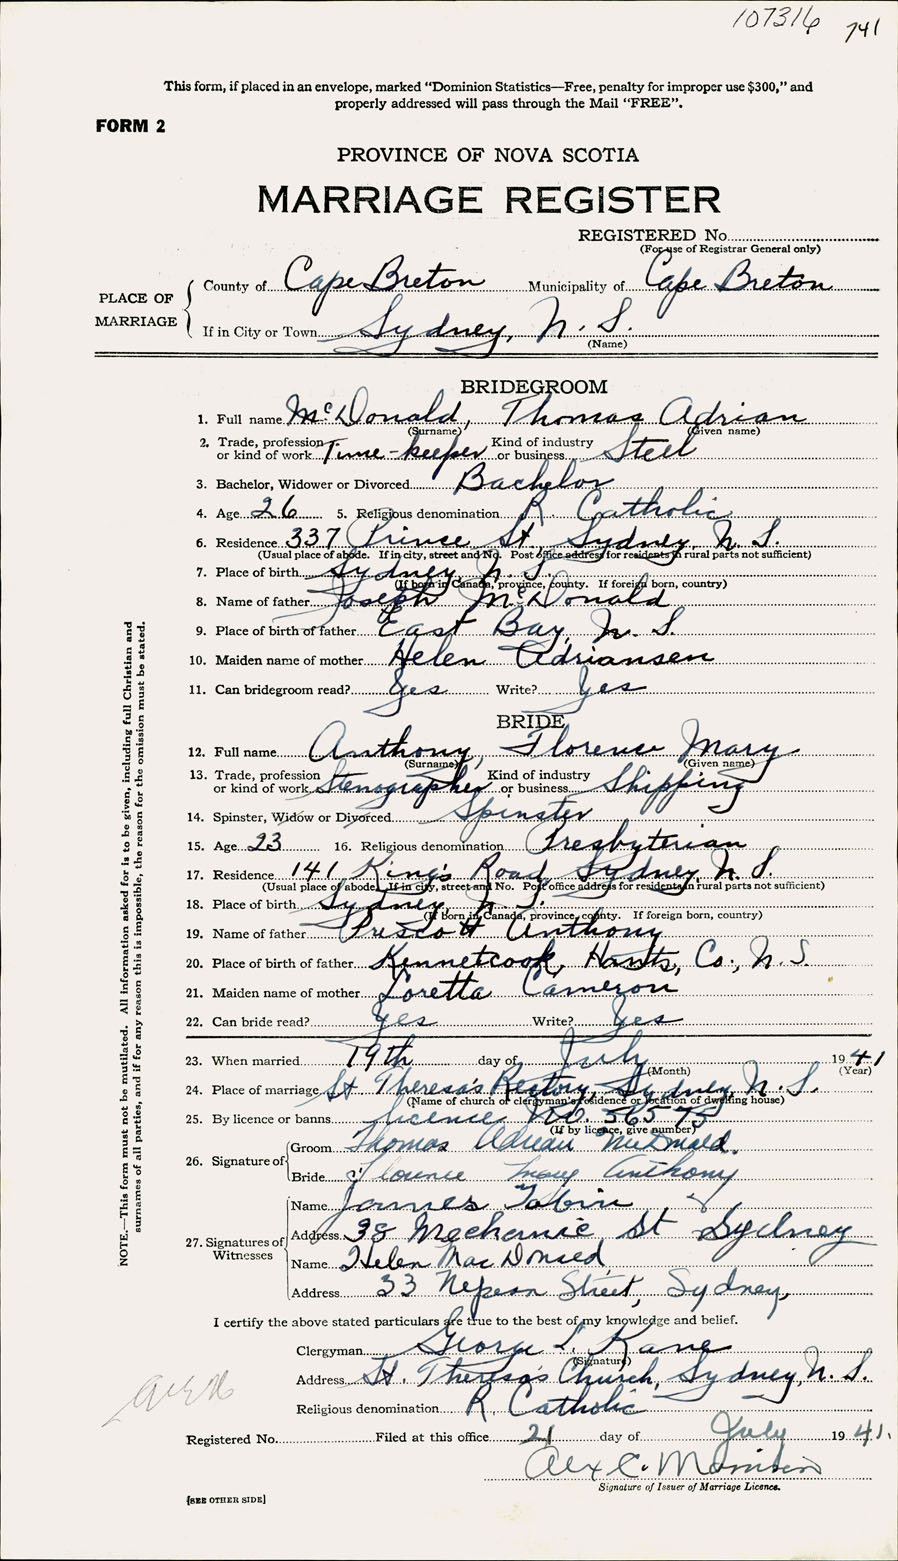 107316 741
This form, if placed in an envelope, marked “Dominion Statistics—Free, penalty for improper use $300,” and
properly addressed will pass through the Mail “FREE”.
FORM 2
PROVINCE OF NOVA SCOTIA
MARRIAGE REGISTER
REGISTERED No.
(For use of Registrar General only)
PLACE OF MARRIAGE
County of Cape Breton Municipality of Cape Breton
If in City or Town Sydney, N. S.
(Name)
BRIDEGROOM
1. Full name McDonald, Thomas Adrian
(Surname) (Given name)
2. Trade, profession or kind of work Time-keeper Kind of industry or business Steel
3. Bachelor, Widower or Divorced Bachelor
4. Age 26 5. Religious denomination R. Catholic
6. Residence 337 Prince St. Sydney, N. S.
(Usual place of abode. If in city, street and No. Post office address for residents in rural parts not sufficient)
7. Place of birth Sydney N. S.
(If born in Canada, province, county. If foreign born, country)
8. Name of father Joseph McDonald
9. Place of birth of father East Bay, N. S.
10. Maiden name of mother Helen Adriansen
11. Can bridegroom read? Yes Write? Yes
BRIDE
12. Full name Anthony, Florence Mary
(Surname) (Given name)
13. Trade, profession or kind of work Stenographer Kind of industry or business Shipping
14. Spinster, Widow or Divorced Spinster
15. Age 23 16. Religious denomination Presbyterian
17. Residence 141 King's Road Sydney, N. S.
(Usual place of abode. If in city, street and No. Post office address for residents in rural parts not sufficient)
18. Place of birth Sydney, N. S.
(If born in Canada, province, county. If foreign born, country)
19. Name of father Prescott Anthony
20. Place of birth of father Kennetcook, Hants, Co., N. S.
21. Maiden name of mother Loretta Cameron
22. Can bride read? Yes Write? Yes
23. When married 19th day of July 1941
(Month) (Year)
24. Place of marriage St Theresa's Rectory, Sydney, N. S.
(Name of church or clergyman's residence or location of dwelling house)
25. By licence or banns Licence No. 56575
(If by licence, give number)
26. Signature of
Groom Thomas Adrian McDonald.
Bride Florence Mary Anthony
27. Signatures of Witnesses
Name James Tobin
Address 38 Mechanic St Sydney
Name Helen MacDonald
Address 33 Nepean Street, Sydney,
I certify the above stated particulars are true to the best of my knowledge and belief.
Clergyman George L. Kane
(Signature)
Address St. Theresa's Church, Sydney, N. S.
Religious denomination R. Catholic
Registered No. Filed at this office 21 day of July 1941.
Alex C. Morrison
Signature of Issuer of Marriage Licence.
[SEE OTHER SIDE]
NOTE.—This form must not be mutilated. All information asked for is to be given, including full Christian and
surnames of all parties, and if for any reason this is impossible, the reason for the omission must be stated.